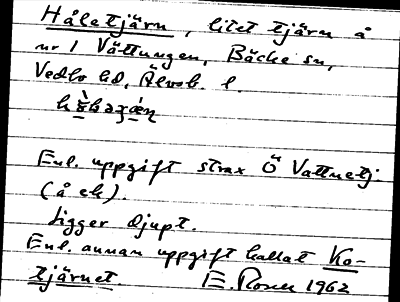 Håletjärn, litet tjärn å
nr 1 Vättungen, Bäcke sn,
Vedbo hd, Älvsb. l.
Enl. uppgift strax Ö Vattnetj.
(å ek).
Ligger djupt.
Enl. annan uppgift kallat Ko-
tjärnet. E. Rosell 1962